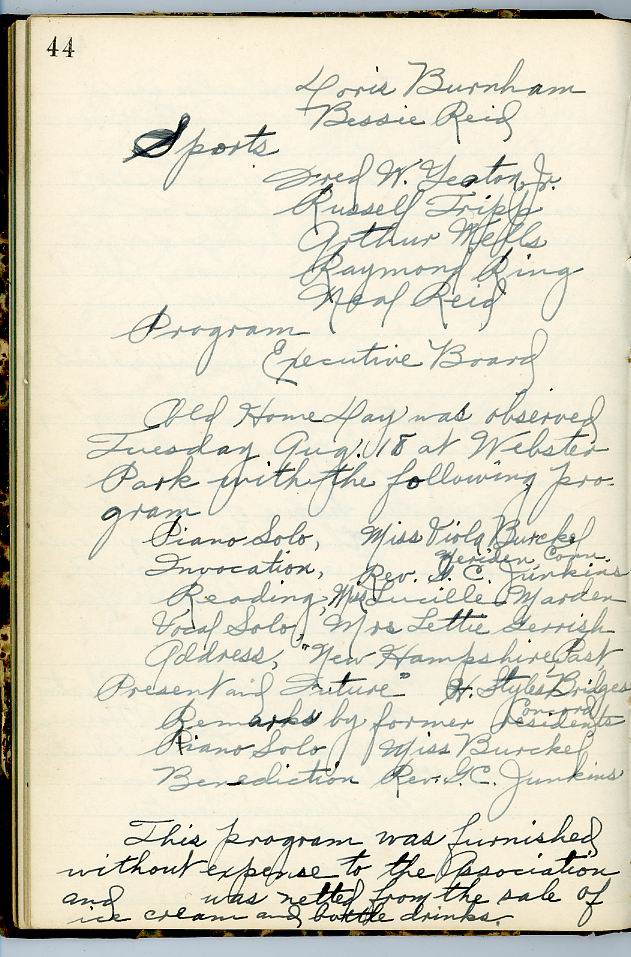 44
Doris Burnham
Bessie Reid
Sports
Fred W. Yeaton, Jr.
Russell Tripp
Arthur Wells
Raymond King
Neal Reid
Program
Executive Board
Old Home Day was observed
Tuesday Aug. 18 at Webster
Park with the following pro-
gram
Piano Solo, Miss Viola Burckel
Meriden, Conn.
Invocation, Rev. G. C. Junkins
Reading, Miss Lucille Marden
Vocal Solo, Mrs Lettie Gerrish
Address, "New Hampshire Past,
Present and Future" H. Styles Bridges
Concord
Remarks by former residents
Piano Solo Miss Burckel
Benediction Rev. G. C. Junkins
This program was furnished
without expense to the Association
and was netted from the sale of
ice cream and bottle drinks.